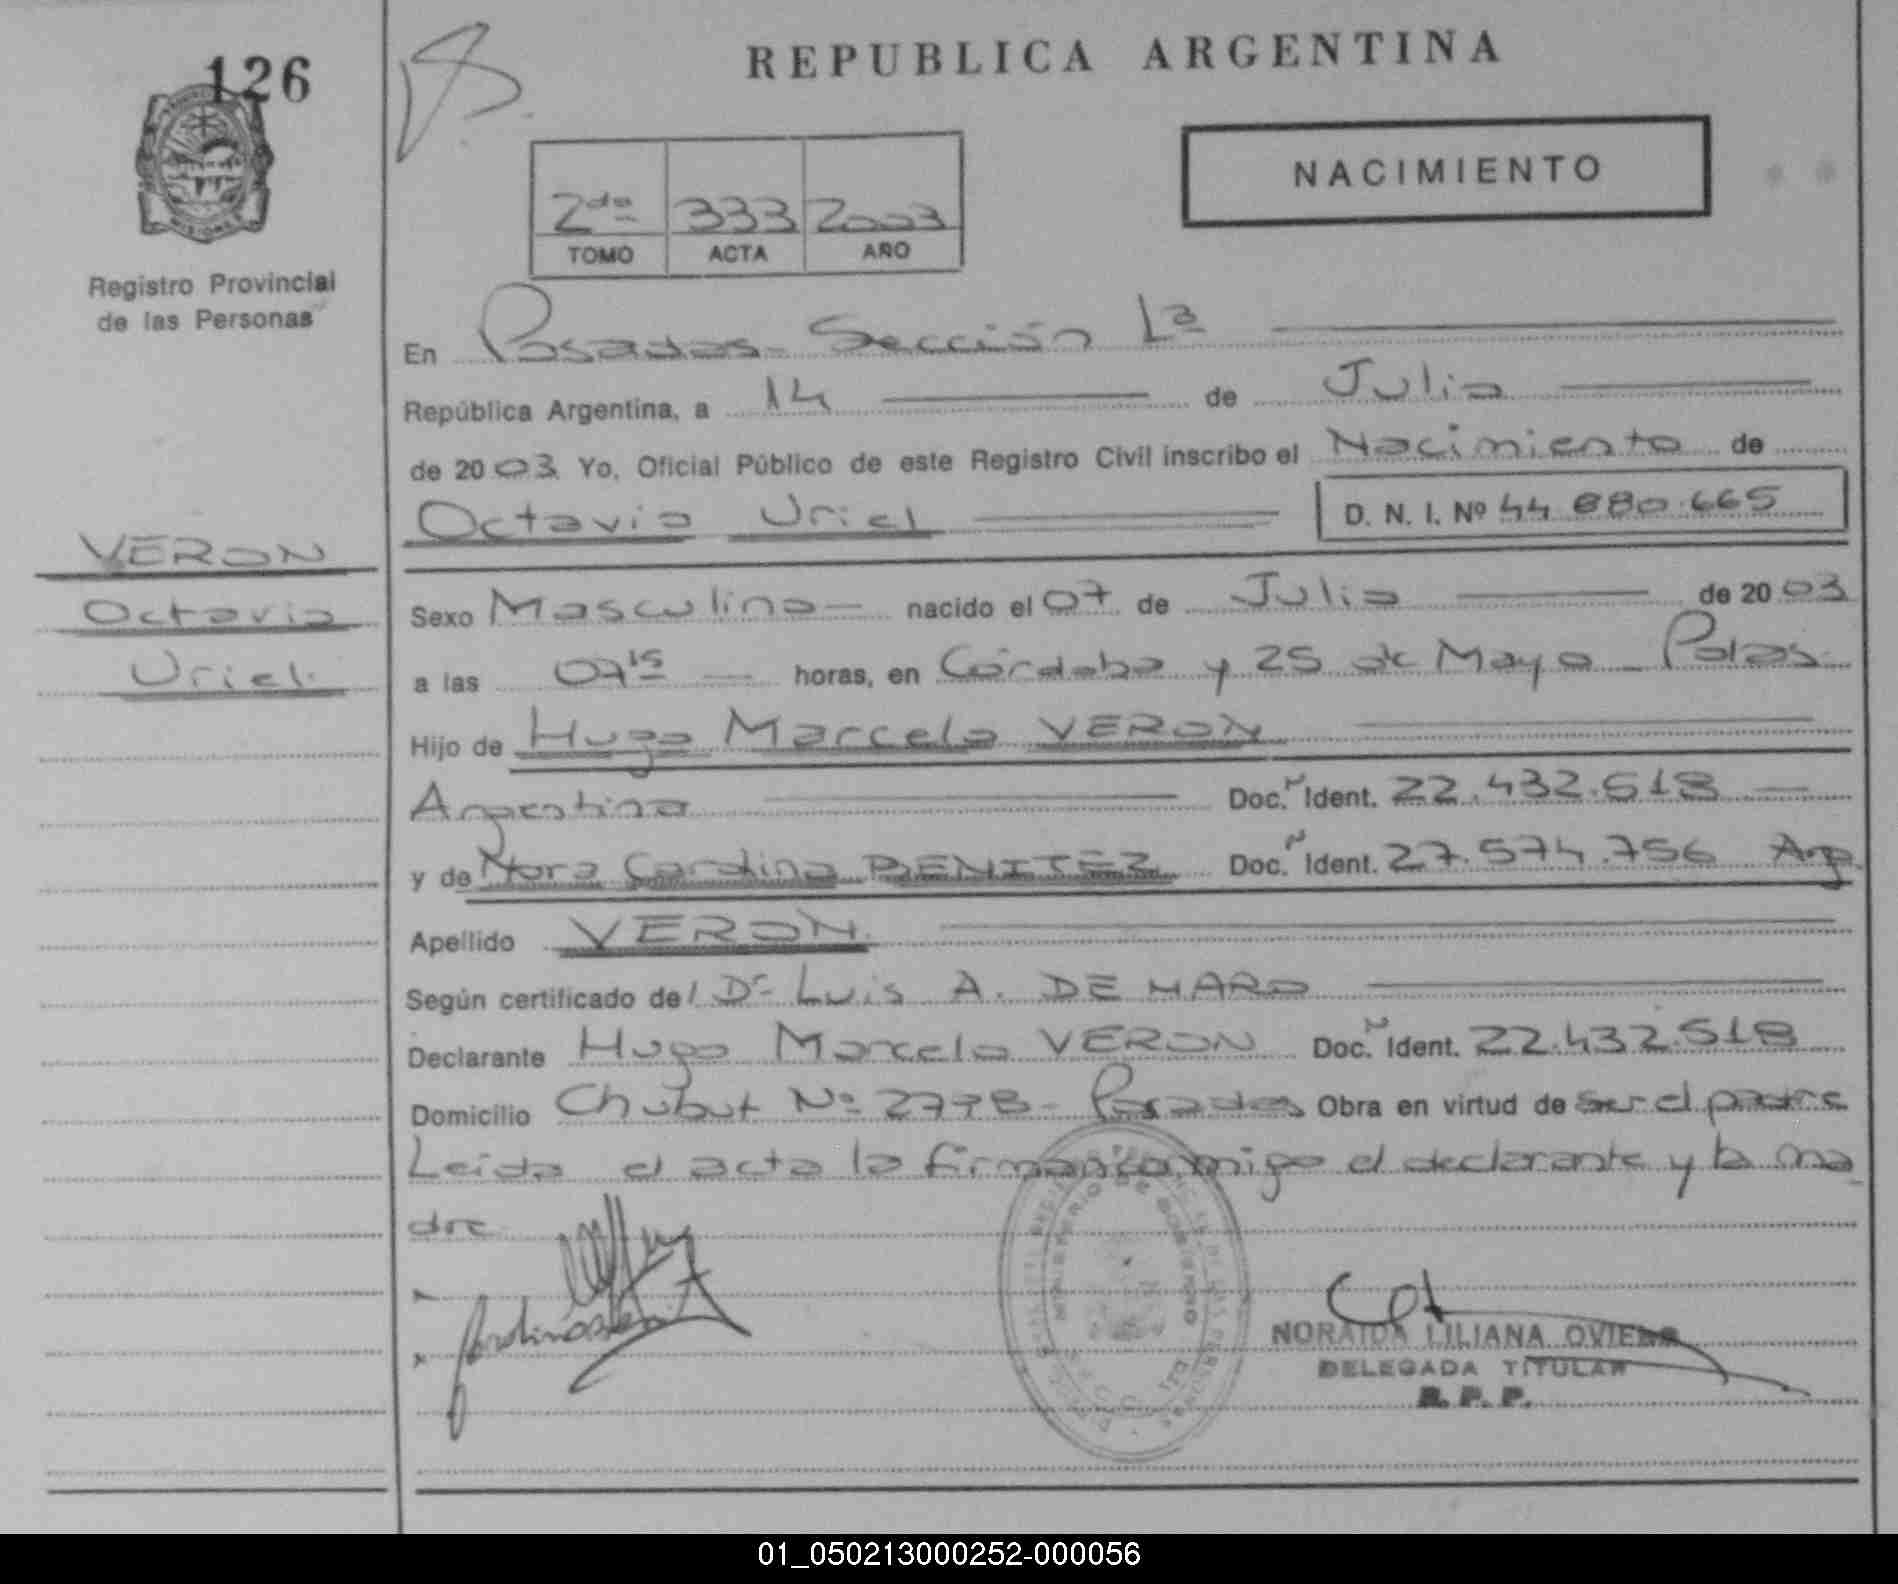 126
REPUBLICA ARGENTINA
NACIMIENTO
2da 333 2003
TOMO ACTA AÑO
Registro Provincial
de las Personas
En Posadas - Sección 1a
República Argentina, a 14 de Julio
de 2003 Yo, Oficial Público de este Registro Civil inscribo el Nacimiento de
Octavio Uriel D. N. I. Nº 44.880.665
VERON
Octavio
Uriel.
Sexo Masculino nacido el 07 de Julio de 2003
a las 07 15 horas, en Córdoba y 25 de Mayo - Pdas.
Hijo de Hugo Marcelo VERON
Argentino Doc. Ident. 22.432.518
y de Nora Carolina BENITEZ Doc. Ident. 27.574.756 Arg.
Apellido VERON.
Según certificado del Dr. Luis A. DE HARO
Declarante Hugo Marcelo VERON Doc. Ident. 22.432.518
Domicilio Chubut Nº 2798 - Posadas Obra en virtud de ser el padre
Leída el acta la firman conmigo el declarante y la ma
dre
MINISTERIO DE GOBIERNO
NORAIDA LILIANA OVIEDO
DELEGADA TITULAR
R. P. P.
01_050213000252-000056